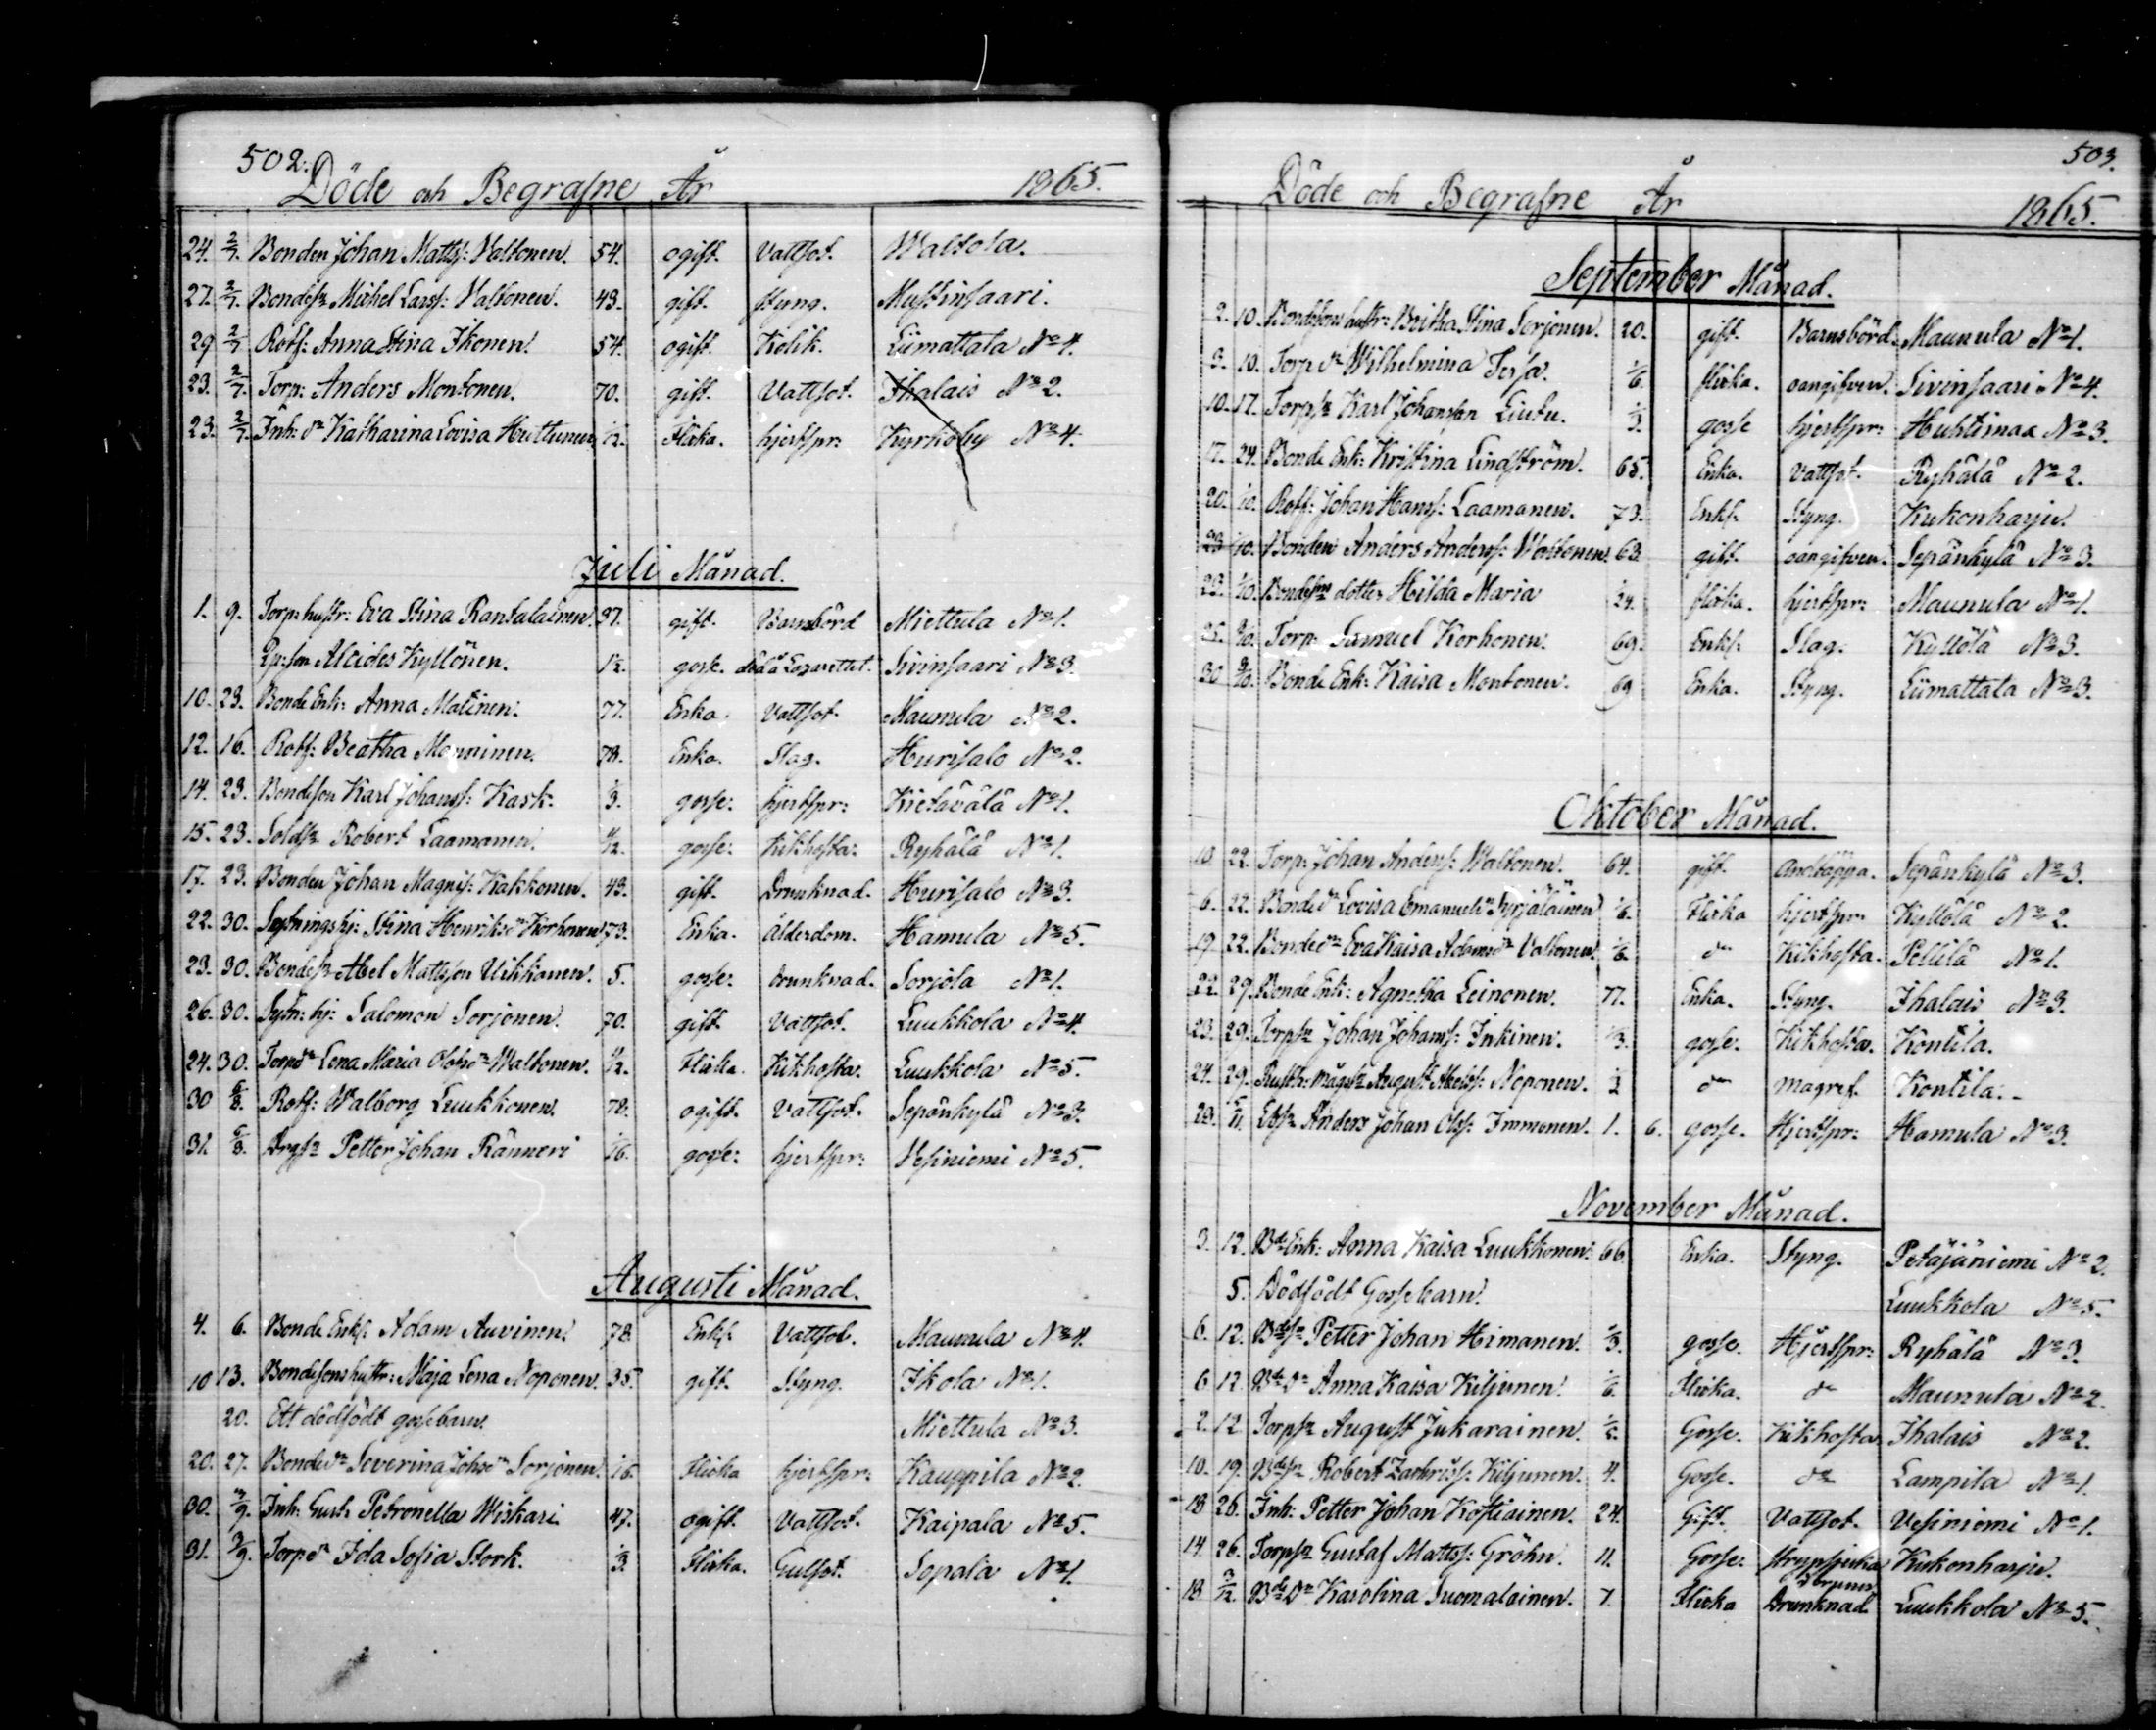 502.
Döde och Begrafne År 1865.
24. 2/7. Bonden Johan Mattss: Valtonen. 54. ogift. Vattsot. Waltola.
27. 2/7. Bondesn Michel Larss: Valtonen. 43. gift. styng. Mustinsaari.
29 2/7 Rotf: Anna Stina Ikonen. 54. ogift. Kolik. Liimattala No 4.
23. 2/7. Torp: Anders Montonen. 70. gift. Vattsot. Ihalais No 2.
23. 2/7. Inh: dr Katharina Lovisa Huttunen 1/12. Flicka. hjertspr: Kyrkoby No 4.
Juli Månad.
1. 9. Torp: hustr: Eva Stina Rantalainen. 37. gift. Barnsbörd Miettula No 1.
Alcides Kyllönen. 1/2. gosse. död å Lazarettet. Sivinsaari No 3.
10. 23. Bonde Enk: Anna Matinen. 77. Enka. Vattsot. Maunula No 2.
12. 16. Rotf: Beatha Monninen. 78. Enka. Slag. Hurisalo No 2.
14. 23. Bondeson Karl Johanss: Kask. 1/3. gosse: hjertspr: Kietävälä No 1.
15. 23. Soldsn Robert Laamanen. 4/12. gosse: Kikhosta: Ryhälä No 1.
17. 23. Bonden Johan Magnis: Kakkonen. 43. gift. Drunknad. Hurisalo No 3.
22. 30. Sytningshj: Stina Henriksdr Korhonen 73. Enka. Ålderdom. Hamula No 5.
23. 30. Bondesn Abel Mattsson Uikkanen. 5. gosse: drunknad. Sorjola No 1.
26. 30. Sytn: hj: Salomon Sorjonen. 70. gift. Vattsot. Luukkola No 4.
24. 30. Torpdr Lena Maria Olofsdr Waltonen. 4/12. Flicka. Kikhosta. Luukkola No 5.
30 6/8. Rotf: Walborg Luukkonen. 78. ogift. Vattsot. Sepänkylä No 3.
31. 6/8. Drgsn Petter Johan Ränneri 1/6. gosse: hjertspr: Vesiniemi No 5.
Augusti Månad.
4. 6. Bonde Enkl: Adam Auvinen. 78. Enkl. Vattsot. Maunula No 4.
10 13. Bondesons hustr: Maja Lena Noponen. 35. gift. Styng. Ikola No 1.
20. Ett dödfödt gossebarn. Miettula No 3.
20. 27. Bondedr Severina Johsdr Sorjonen. 1/6. Flicka hjertspr: Kauppila No 2.
30. 3/9. Inh: Petronella Wiskari 47. ogift. Vattsot. Kaipala No 5.
31. 3/9. Torpdr Ida Sofia Stork. 1/3. Flicka. Gulsot. Sopala No 1.
503.
Döde och Begrafne År 1865.
September Månad.
2. 10. Bondesons hustr: Britha Stina Sorjonen. 20. gift. Barnsbörd. Maunula No 1.
3. 10. Torp dr Wilhelmina 1/6. flicka. oangifven. Sivinsaari No 4.
10. 17. Torpsn Karl Johansson Liutu. 1/3. gosse hjertspr: Huhtimaa No 3.
17. 24. Bonde Enk: Kristina Lindström. 65. Enka. Vattsot. Ryhälä No 2.
20. 1/10. Rotf: Johan Hanss: Laamanen. 73. Enkl. Styng. Kukonharju.
23 1/10. Bonden Anders Anderss: Waltonen. 63 gift. oangifven. Sepänkylä No 3.
23. 1/10. Bondesons dotter Hilda Maria 1/24. flicka. hjertspr: Maunula No 1.
25. 9/10. Torp: Samuel Korhonen. 69. Enkl: Slag. Kyllölä No 3.
30 9/10. Bonde Enk: Kaisa Montonen. 69 Enka. Styng. Liimattala No 3.
Oktober Månad.
10. 22. Torp: Johan Anderss: Waltonen. 64. gift. Andtäppa. Sepänkylä No 3.
6. 22. Bondedr Lovisa Emanuelsdr Syrjäläinen 1/6. Flicka hjertspr Kyllölä No 2.
19 22. Bondedr Eva Kaisa Adamsdr Valtonen. 1/6. do Kikhosta. Pellilä No 1.
22. 29. Bonde Enk: Agnetha Leinonen. 77. Enka. Styng. Ihalais No 3.
23. 29. Torpsn Johan Johanss: Inkinen. 1/3. gosse. Kikhosta. Kontila.
24. 29. Rusth: mågsn August Abelss: Noponen. 1/2 do magref. Kontila.
29. 5/11. Anders Johan Olss: Immonen. 1. 6. gosse. Hjertspr: Hamula No 3.
November Månad.
3. 12. Bde Enk: Anna Kaisa Luukkonen. 66. Enka. Styng. Petäjäniemi No 2.
5. Dödfödt Gossebarn. Luukkola No 5.
6. 12. Bdesn Petter Johan Himanen. 1/3. gosse. Hjertspr: Ryhälä No 3.
6 12. Bdedr Anna Kaisa Kiljunen. 1/6. Flicka. do Maunula No 2.
2. 12 Torpsn August Jukarainen. Gosse. Kikhosta. Ihalais No 2.
10. 19. Bdesn Robert Zachriss: Kiljunen. 4. Gosse. do Lampila No 1.
18 26. Inh: Petter Johan Kostiainen. 24. Gift. Vattsot. Vesiniemi No 1.
14. 26. Torpsn Gustaf Mattss: Gröhn. 11. Gosse: Strypsjuka Kukonharju.
18 3/12. Bdedr Karolina Suomalainen. 7. Flicka Drunknad Luukkola No 5.